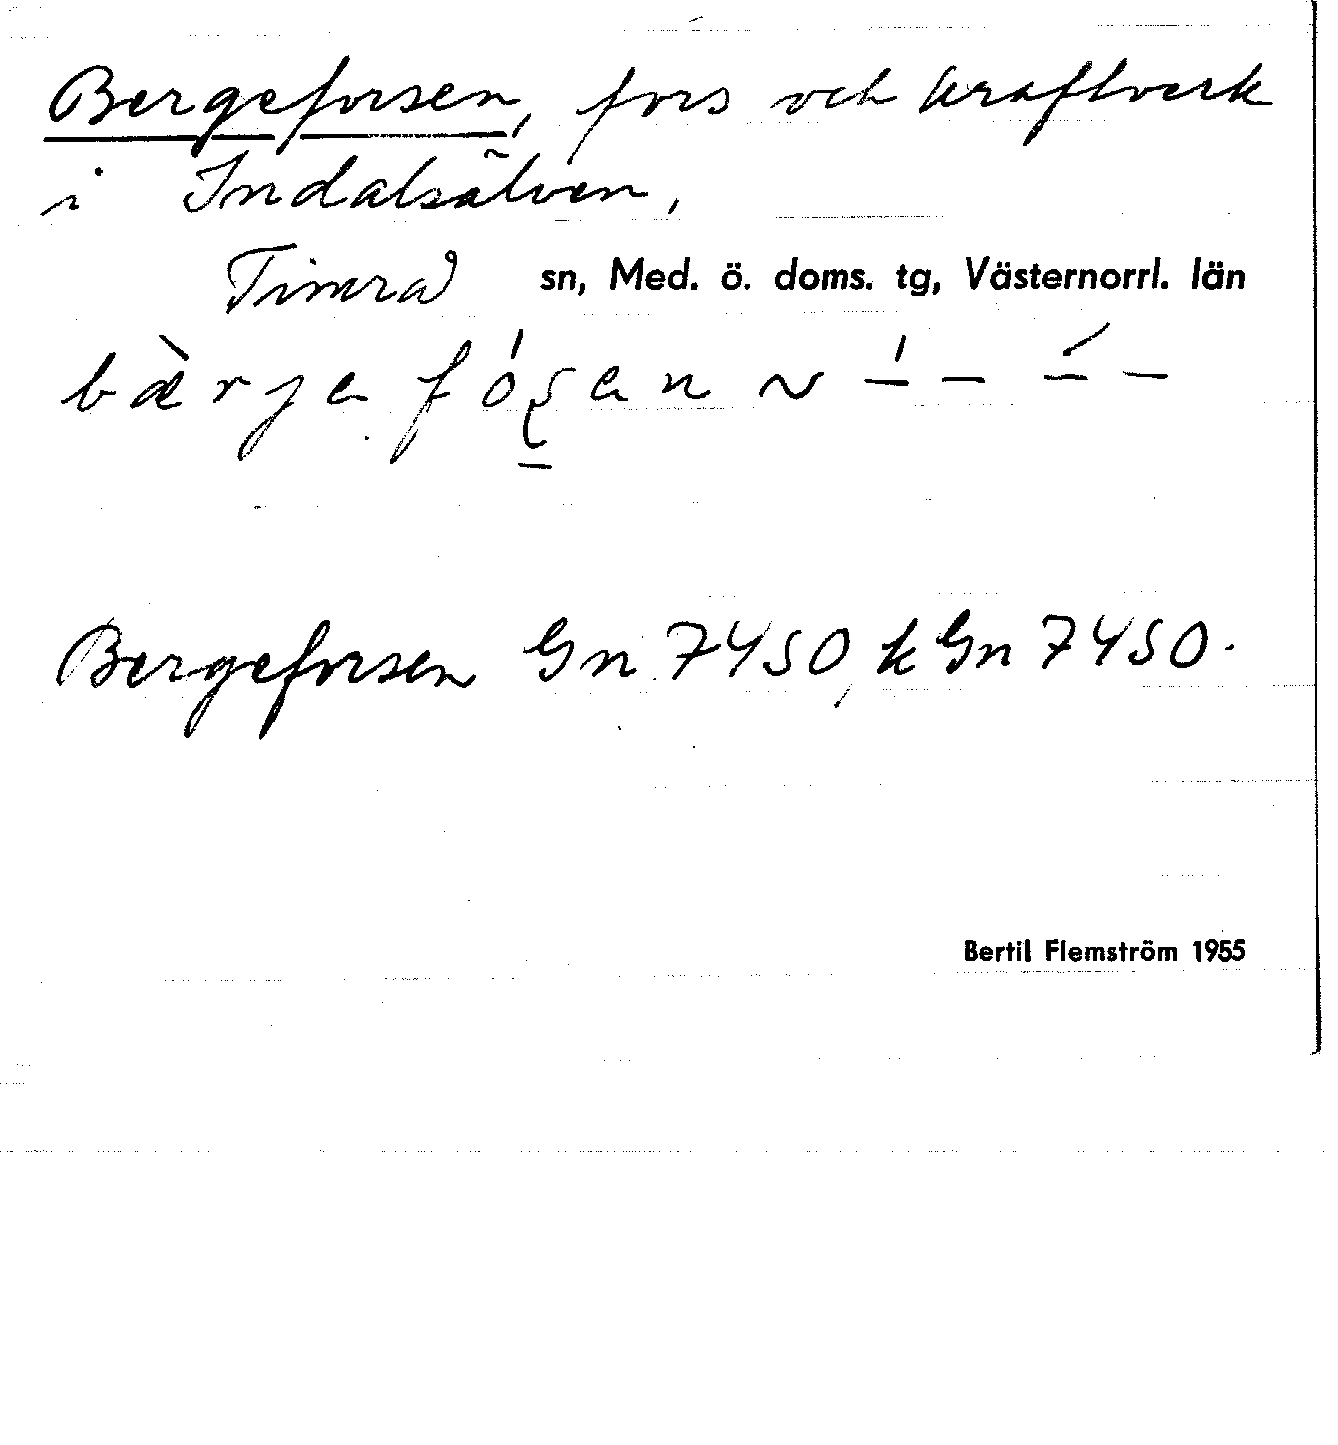 Bergeforsen, fors och kraftverk
i Indalsälven,
Timrå sn, Med. ö. doms. tg, Västernorrl. län
bæ̀rje fóʂen ~ –́ – –́ –
Bergeforsen Gn 7450, k Gn 7450.
Bertil Flemström 1955